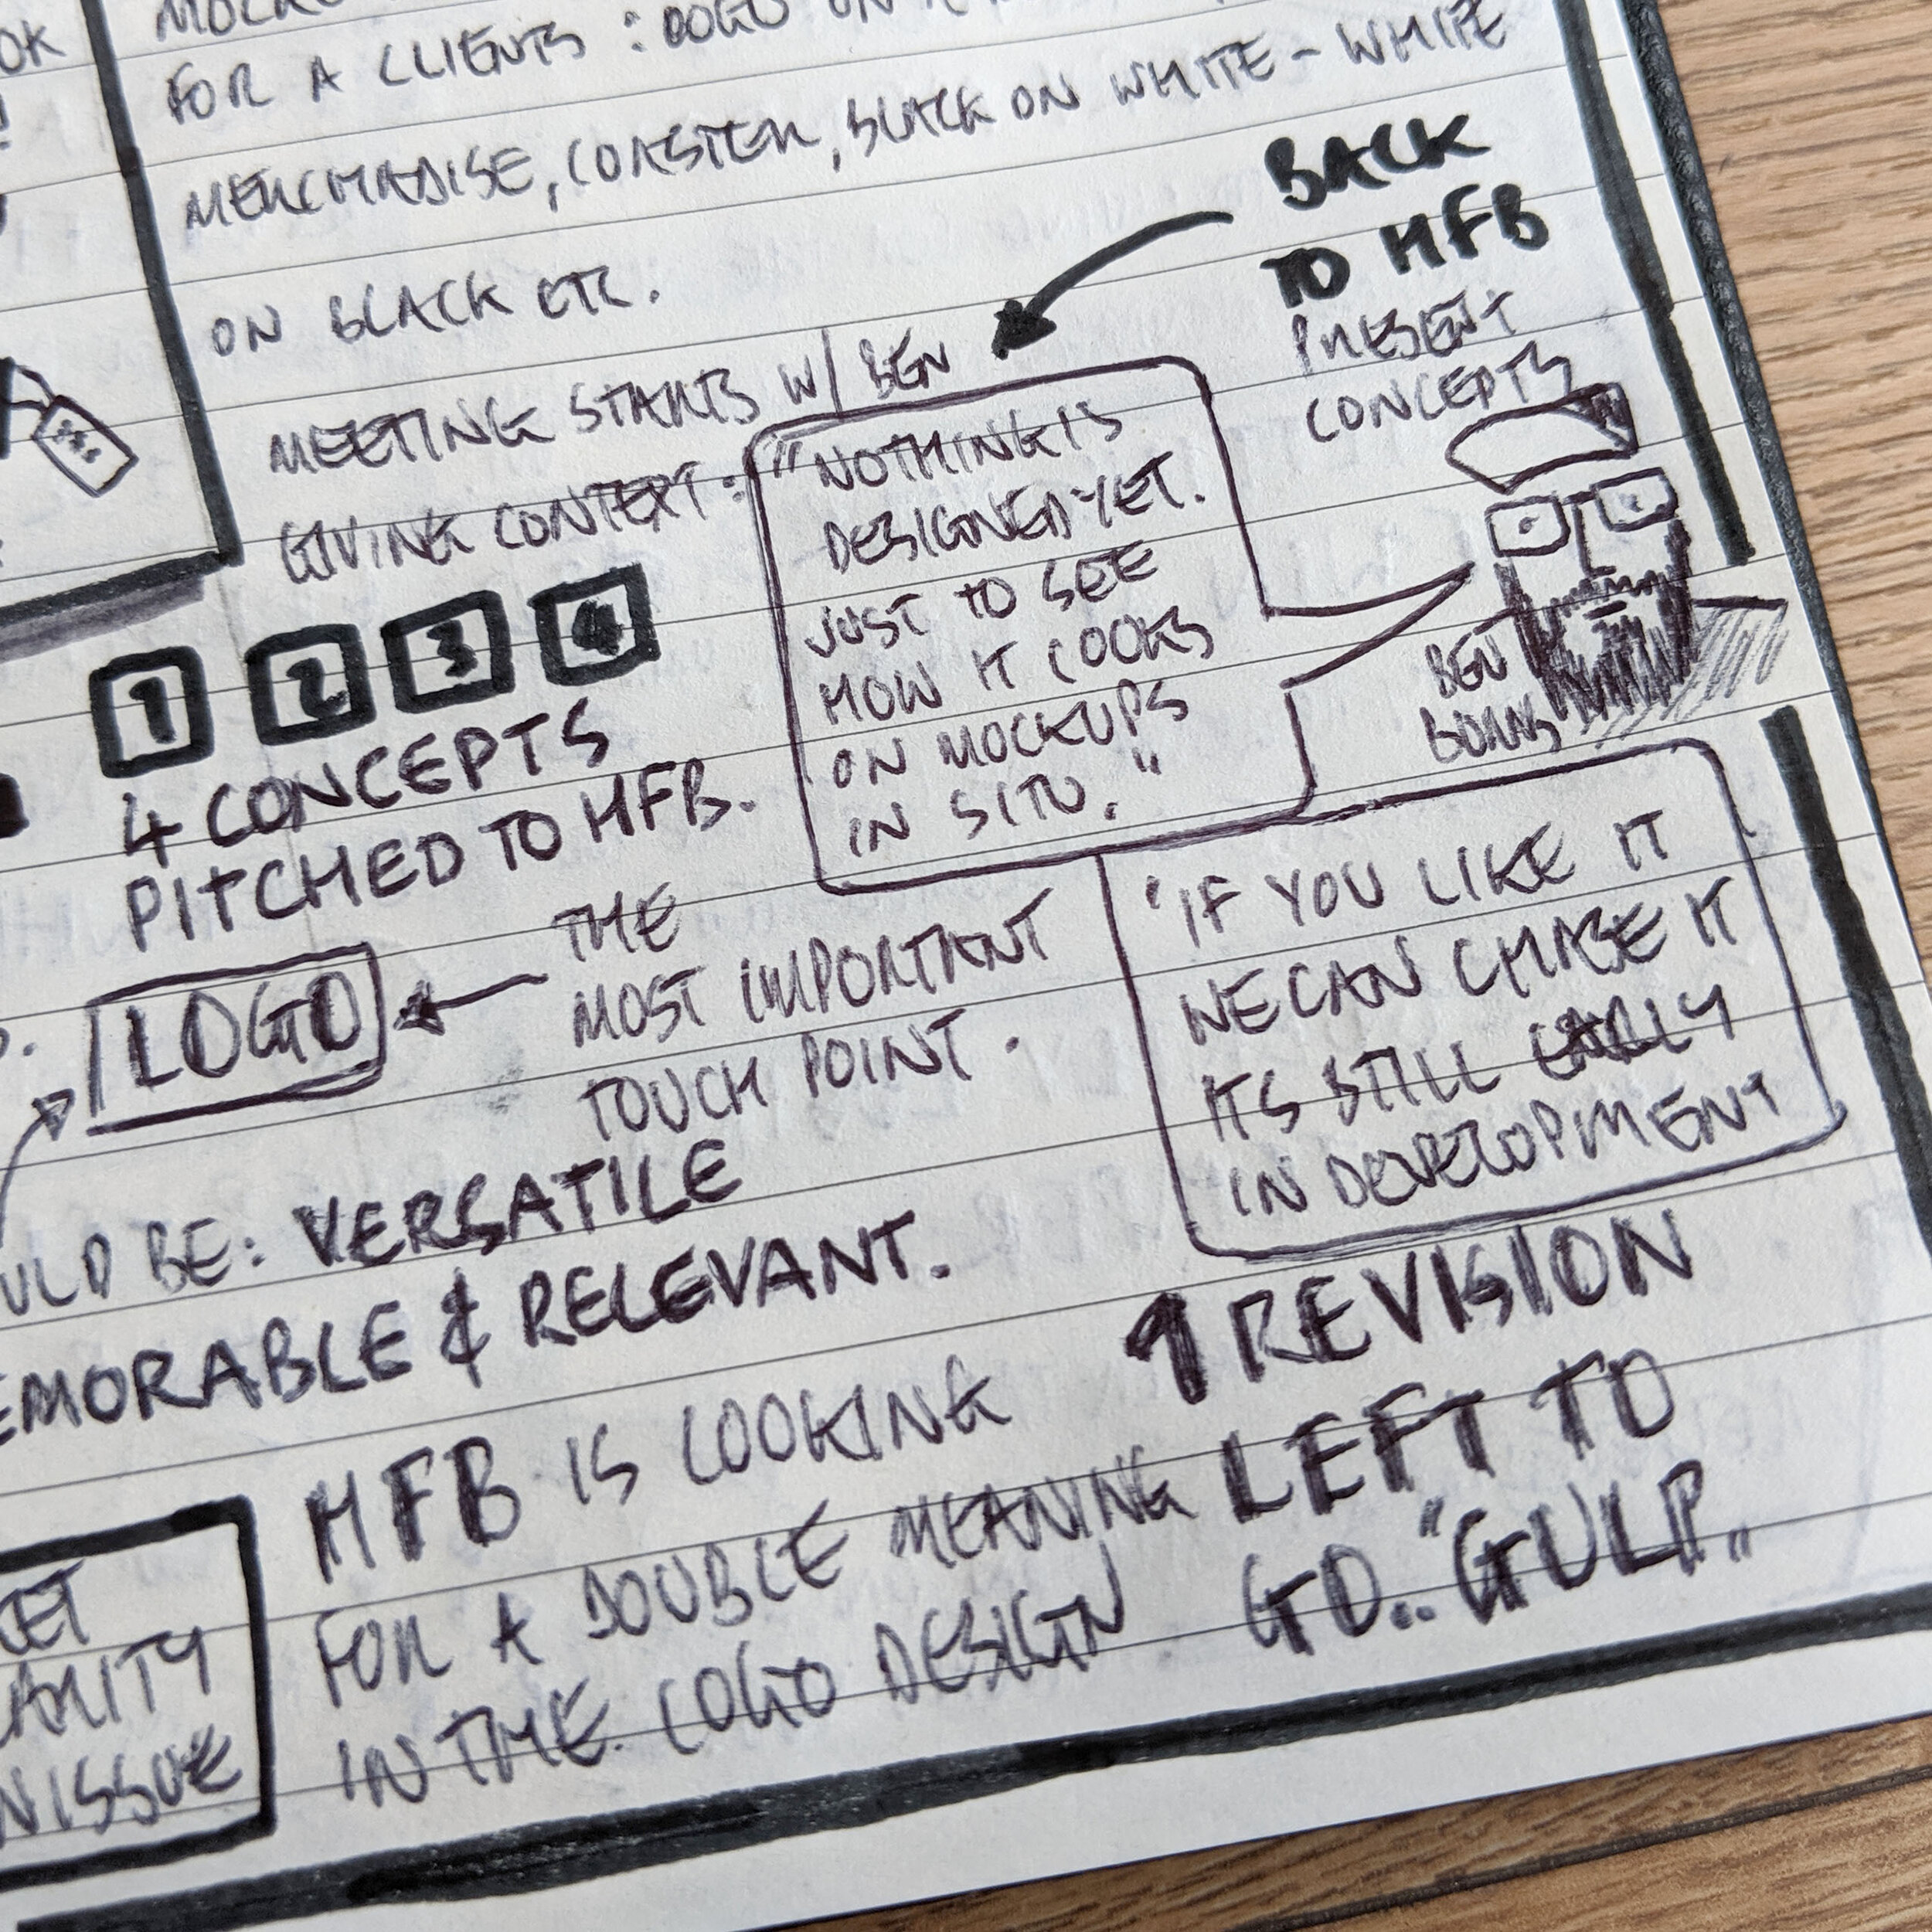 OK
FOR A CLIENTS : LOGO ON
MERCHANDISE, COASTER, BLACK ON WHITE - WHITE
ON BLACK ETC.
BACK
TO HFB
PRESENT
CONCEPTS
MEETING STARTS W/ BEN
GIVING CONTEXT :
"NOTHING IS
DESIGNED YET.
JUST TO SEE
HOW IT LOOKS
ON MOCKUPS
IN SITU."
BEN
BURNS
1 2 3 4
4 CONCEPTS
PITCHED TO HFB.
LOGO
THE
MOST IMPORTANT
TOUCH POINT.
"IF YOU LIKE IT
WE CAN CHASE IT
ITS STILL EARLY
IN DEVELOPMENT
ULD BE: VERSATILE
EMORABLE & RELEVANT.
HFB IS LOOKING
FOR A DOUBLE MEANING
IN THE LOGO DESIGN
1 REVISION
LEFT TO
GO.. "GULP"
KET
ARITY
N ISSUE